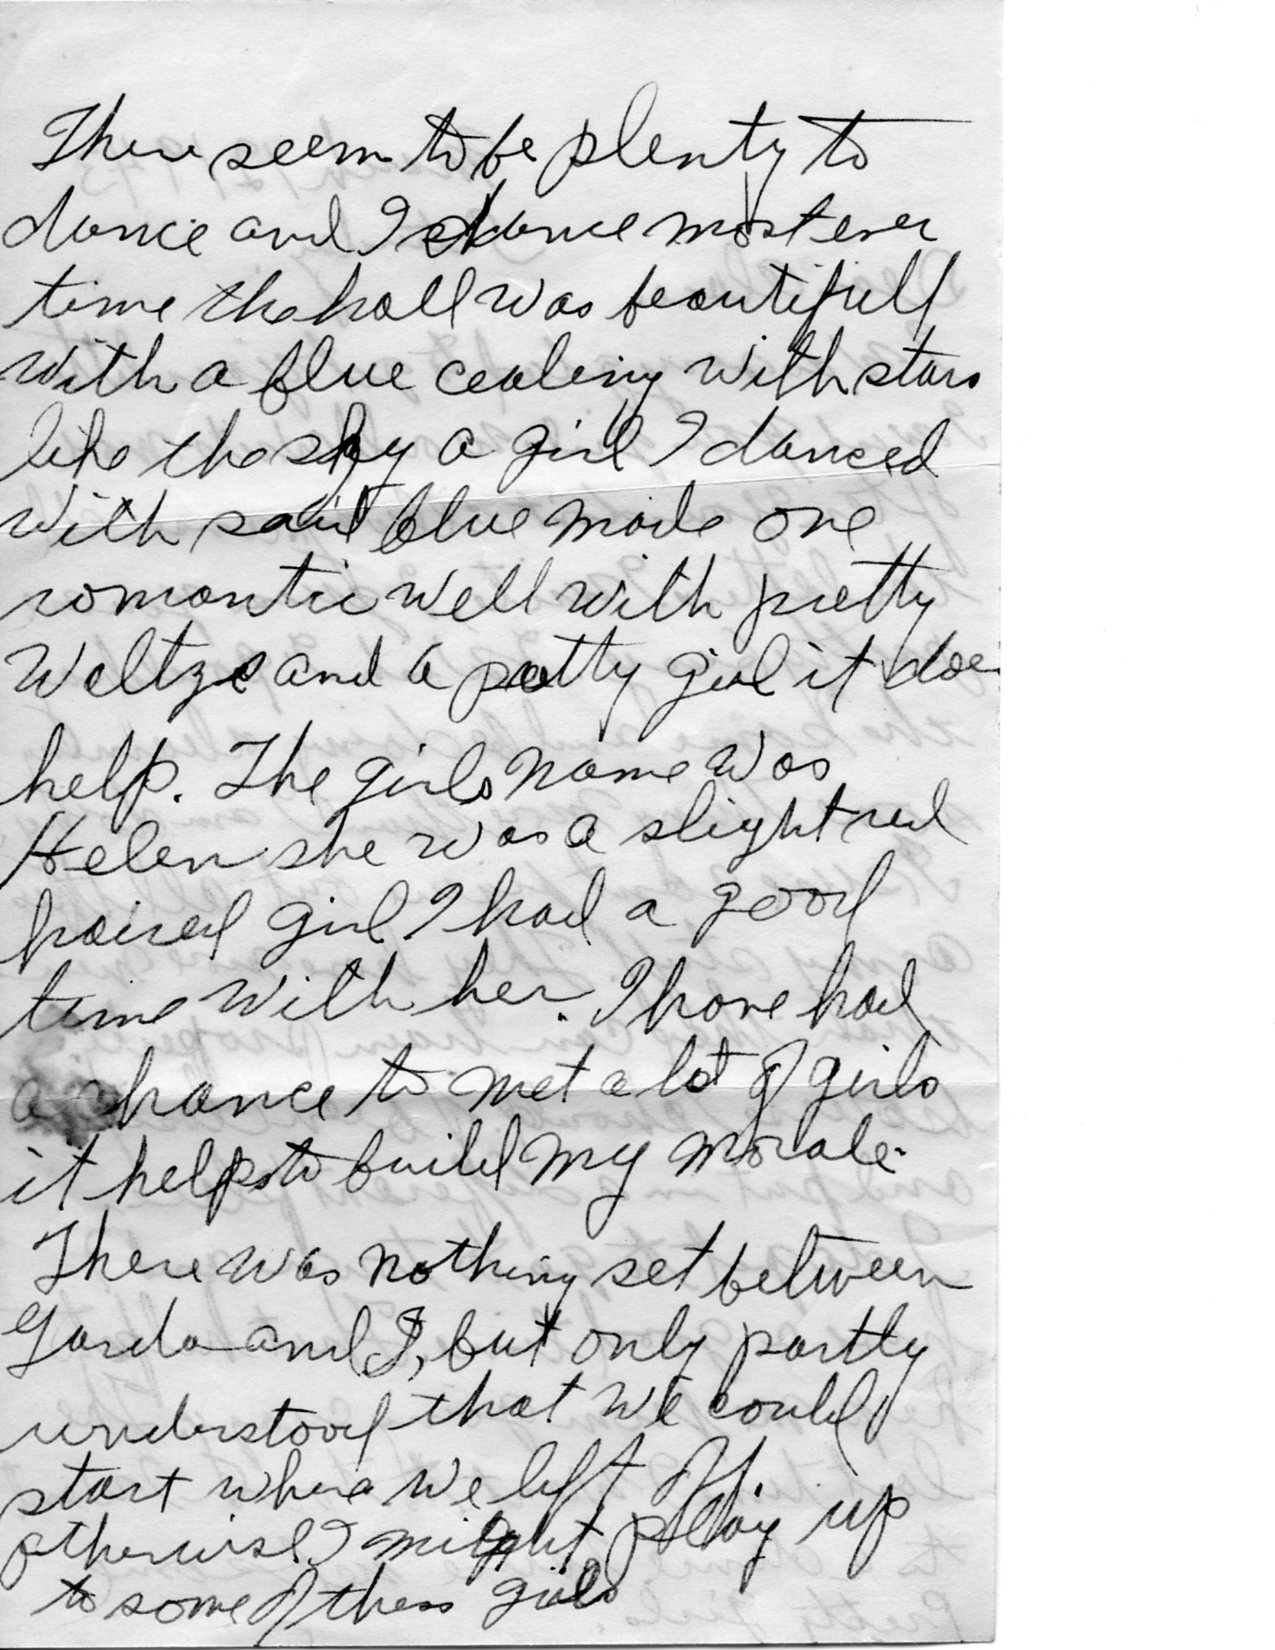 There seem to be plenty to
dance and I dance most ever
time the hall was beautifull
with a blue cealing with stars
like the sky a girl I danced
with said blue made one
romantic well with pretty
Weltze and a pretty girl it doe
help. The girls name was
Helen she was a slight red
haired girl I had a good
time with her. I have had
a chance to met a lot of girls
it helps to build my morale.
There was nothing set between
Garda and I, but only partly
understood that we could
start where we left off
otherwise I might play up
to some of thess girls